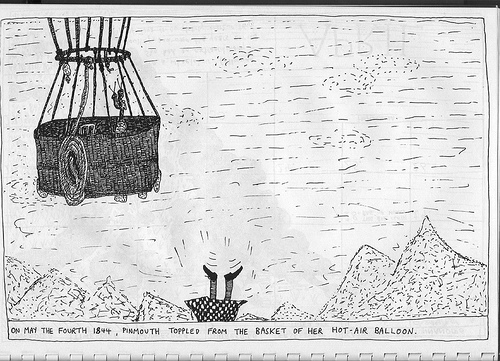 ON MAY THE FOURTH 1844, PINMOUTH TOPPLED FROM THE BASKET OF HER HOT-AIR BALLOON.